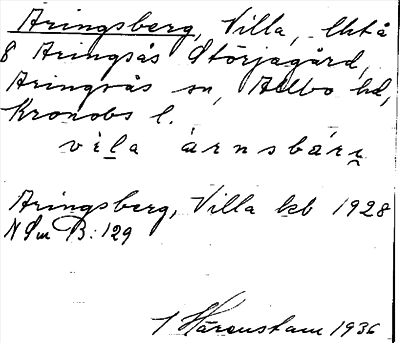 Aringsberg, Villa, Uktå
8 Aringsås Störjagård,
Aringsås sn, Allbo hd,
Kronobs l.
vìla árnsbärj
Aringsberg, Villa kb 1928
N Sm B: 129
I Härenstam 1936